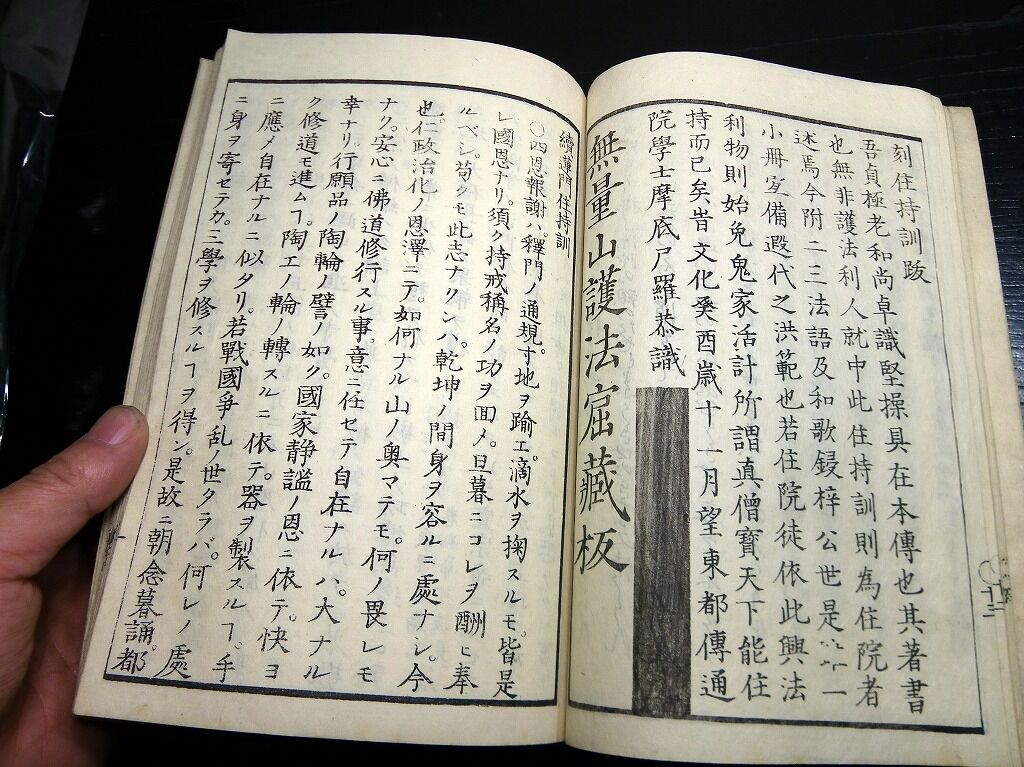 刻住持訓跋
吾貞極老和尚卓識堅操具在本傳也其著書
也無非護法利人就中此住持訓則為住院者
述焉今附二三法語及和歌鋟梓公世是一
小冊寔備遐代之洪範也若住院徒依此興法
利物則始免鬼家活計所謂真僧寶天下能住
持而已矣旹文化癸酉歲十一月望東都傳通
院學士摩底尸羅恭識
無量山護法窟藏板
十三
續蓮門住持訓
〇四恩報謝ハ釋門ノ通規。寸地ヲ踰エ。滴水ヲ掬スルモ。皆是
レ國恩ナリ。須ク持戒稱名ノ功ヲ回メ。旦暮ニコレヲ酬ヒ奉
ルベシ。苟クモ此志ナクンハ。乾坤ノ間身ヲ容ルニ處ナシ。今
也。仁政治化ノ恩澤ニテ。如何ナル山ノ奥マテモ。何ノ畏レモ
ナク。安心ニ佛道修行スル事。意ニ任セテ自在ナルハ。大ナル
幸ナリ。行願品ノ陶輪ノ譬ノ如ク。國家静謐ノ恩ニ依テ。快ヨ
ク修道モ進ムヿ。陶工ノ輪ノ轉スルニ依テ。器ヲ製スルヿ。手
ニ應メ自在ナルニ似タリ。若戰國爭乱ノ世タラバ。何レノ處
ニ身ヲ寄セテカ。三學ヲ修スルヿヲ得ン。是故ニ朝念暮誦。都